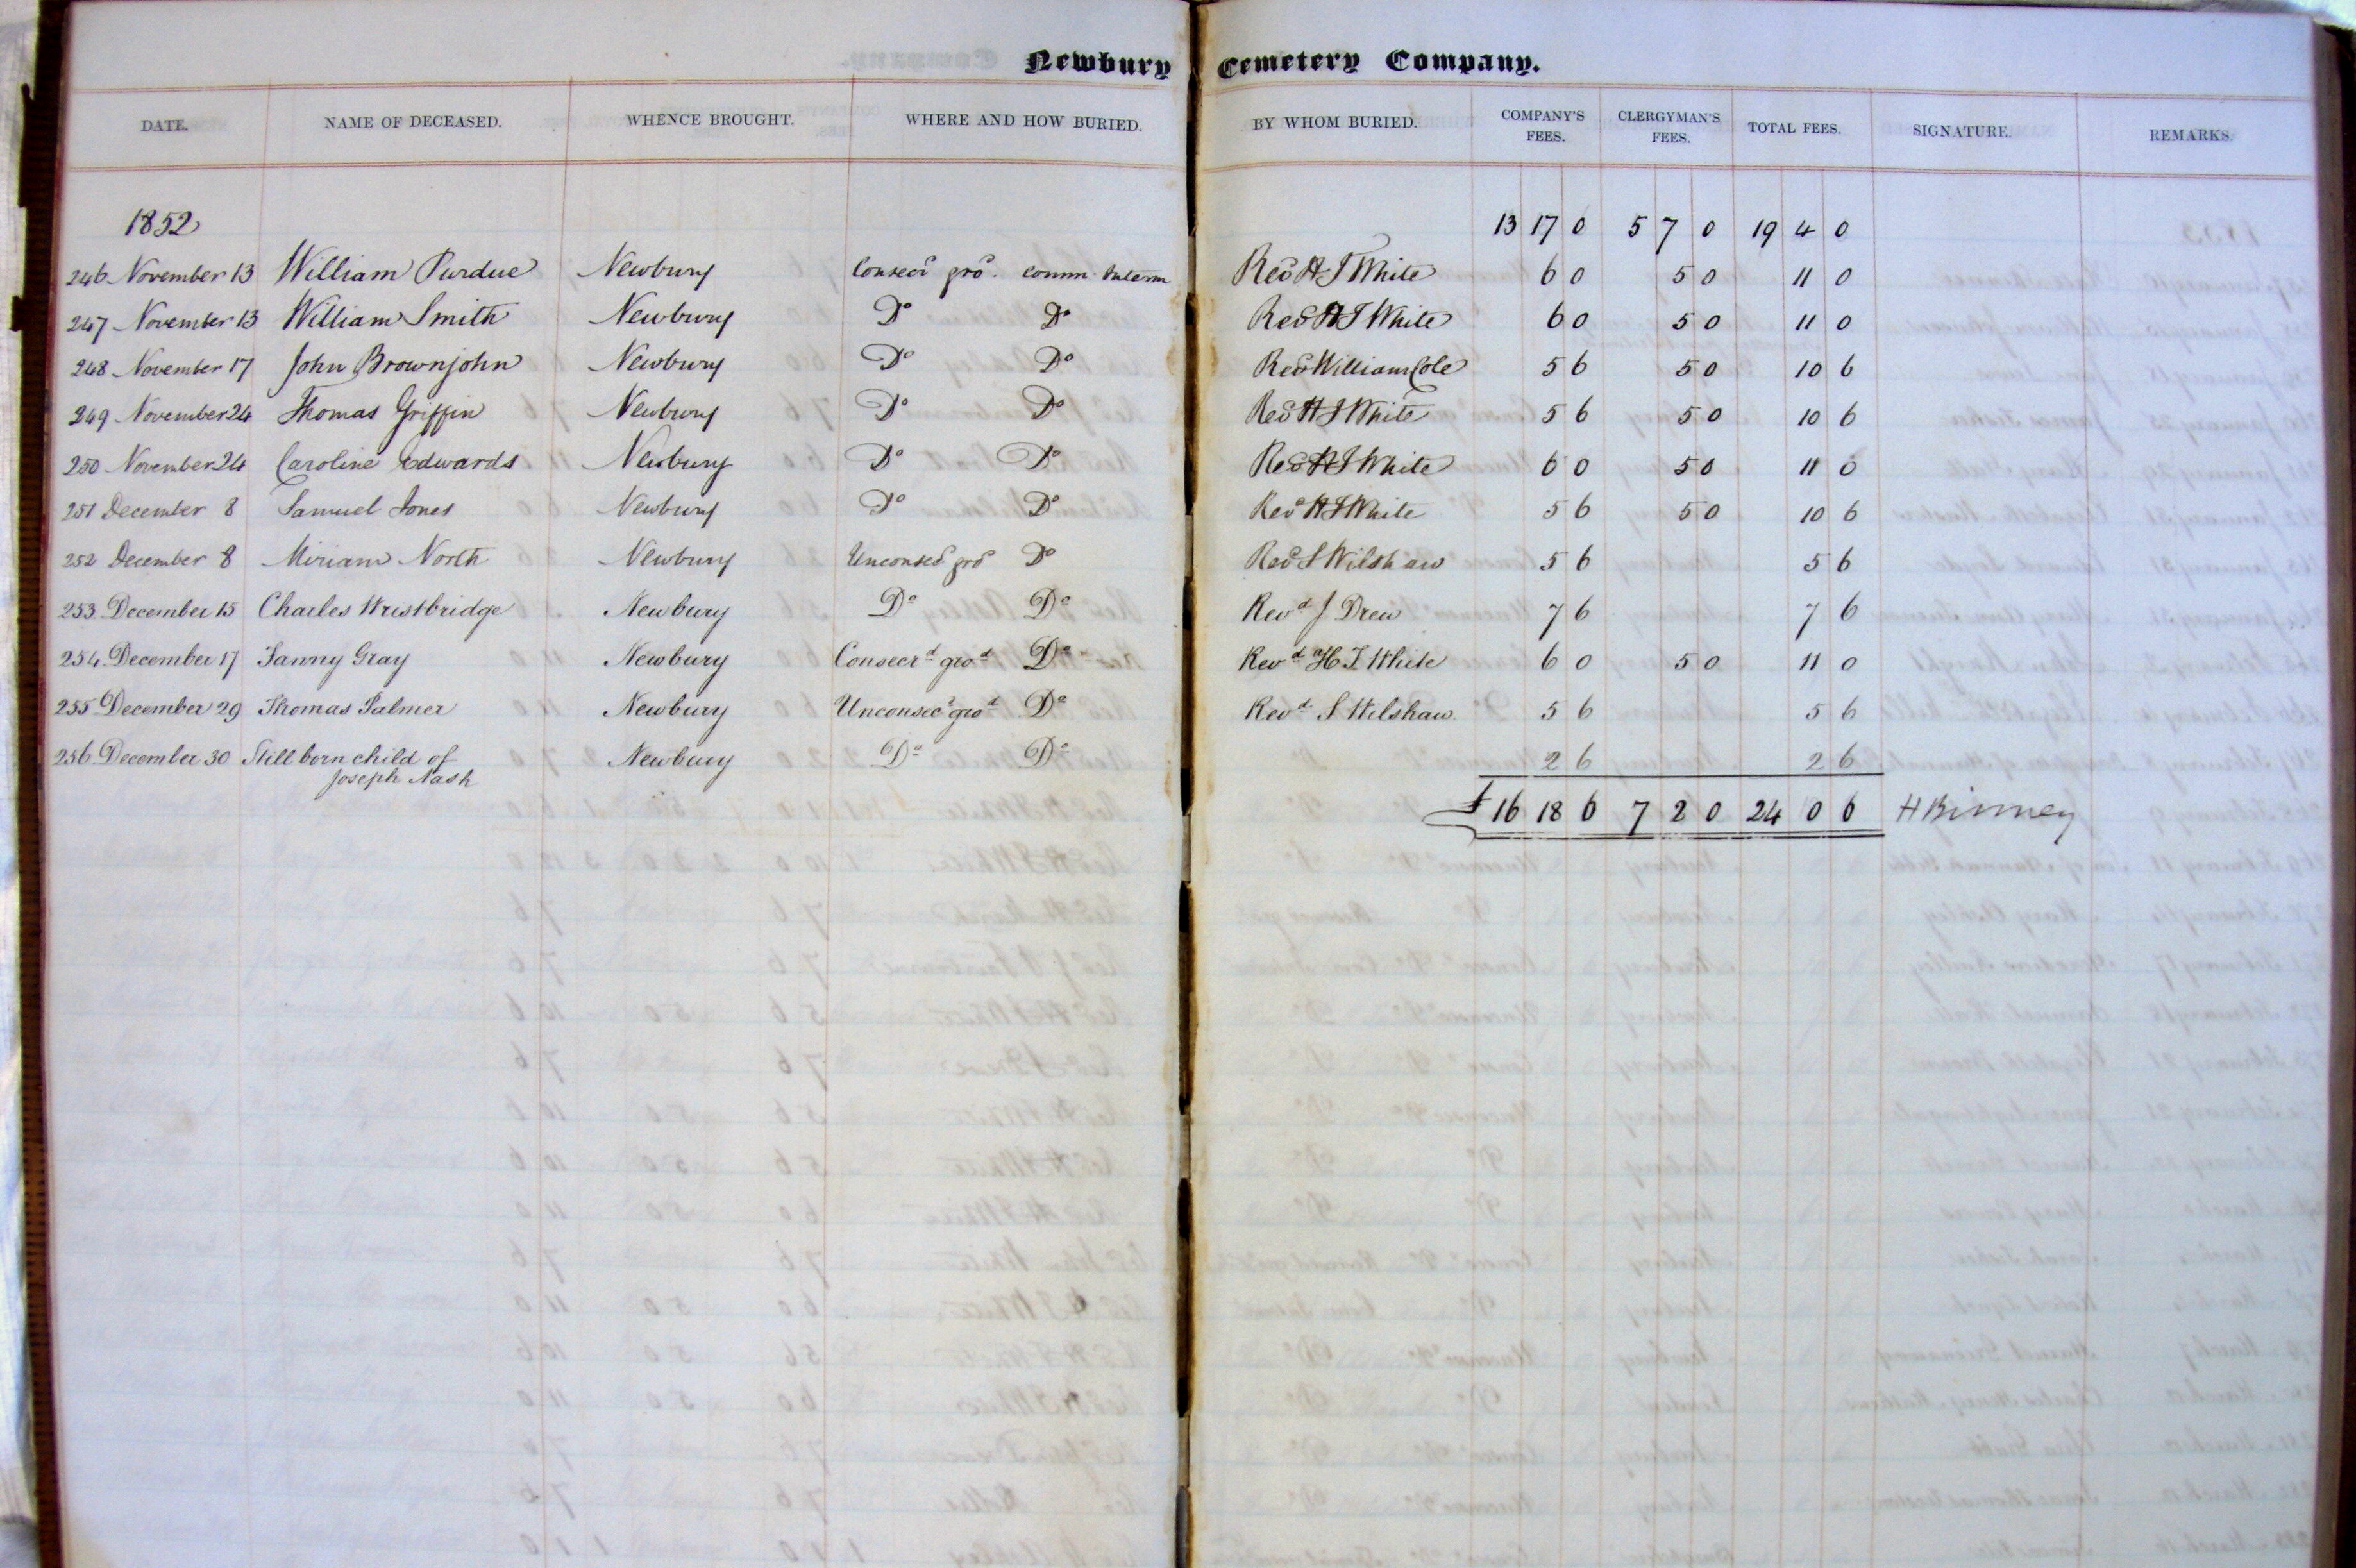 Newbury Cemetery Company.
DATE. NAME OF DECEASED. WHENCE BROUGHT. WHERE AND HOW BURIED. BY WHOM BURIED. COMPANY'S FEES. CLERGYMAN'S FEES. TOTAL FEES. SIGNATURE. REMARKS.
1852 13 17 0 5 7 0 19 4 0
246 November 13 William Purdue Newbury Consecd grd. comm. Interm Revd H J White 6 0 5 0 11 0
247 November 13 William Smith Newbury Do Do Revd H J White 6 0 5 0 11 0
248 November 17 John Brownjohn Newbury Do Do Revd William Cole 5 6 5 0 10 6
249 November 24 Thomas Griffin Newbury Do Do Revd H J White 5 6 5 0 10 6
250 November 24 Caroline Edwards Newbury Do Do Revd H J White 6 0 5 0 11 0
251 December 8 Samuel Jones Newbury Do Do Revd H J White 5 6 5 0 10 6
252 December 8 Miriam North Newbury Unconsed grd Do Revd S Wilshaw 5 6 5 6
253 December 15 Charles Wristbridge Newbury Do Do Revd J Drew 7 6 7 6
254 December 17 Fanny Gray Newbury Consecrd grod Do Revd H. J. White 6 0 5 0 11 0
255 December 29 Thomas Palmer Newbury Unconsecd grod Do Revd S Wilshaw 5 6 5 6
256 December 30 Still born child of Newbury Do Do 2 6 2 6
Joseph Nash
£ 16 18 6 7 2 0 24 0 6 H Binney